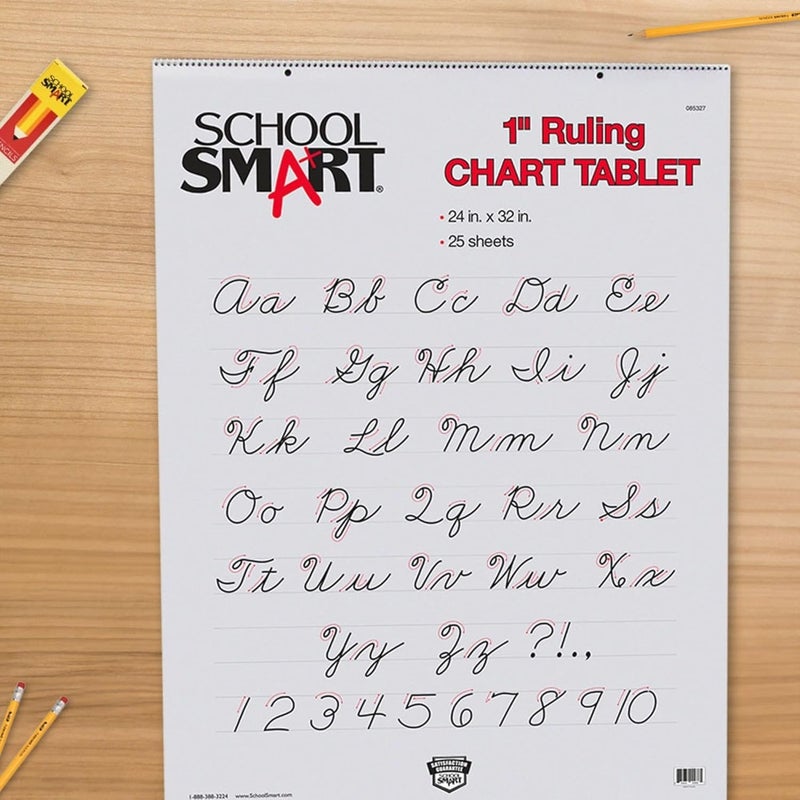 SCHOOL
SMART
PENCILS
085327
SCHOOL
SMART®
1" Ruling
CHART TABLET
• 24 in. x 32 in.
• 25 sheets
Aa Bb Cc Dd Ee
Ff Gg Hh Ii Jj
Kk Ll Mm Nn
Oo Pp Qq Rr Ss
Tt Uu Vv Ww Xx
Yy Zz ?!.,
1 2 3 4 5 6 7 8 9 10
SATISFACTION
GUARANTEE
SCHOOL
SMART
1-888-388-3224 www.SchoolSmart.com